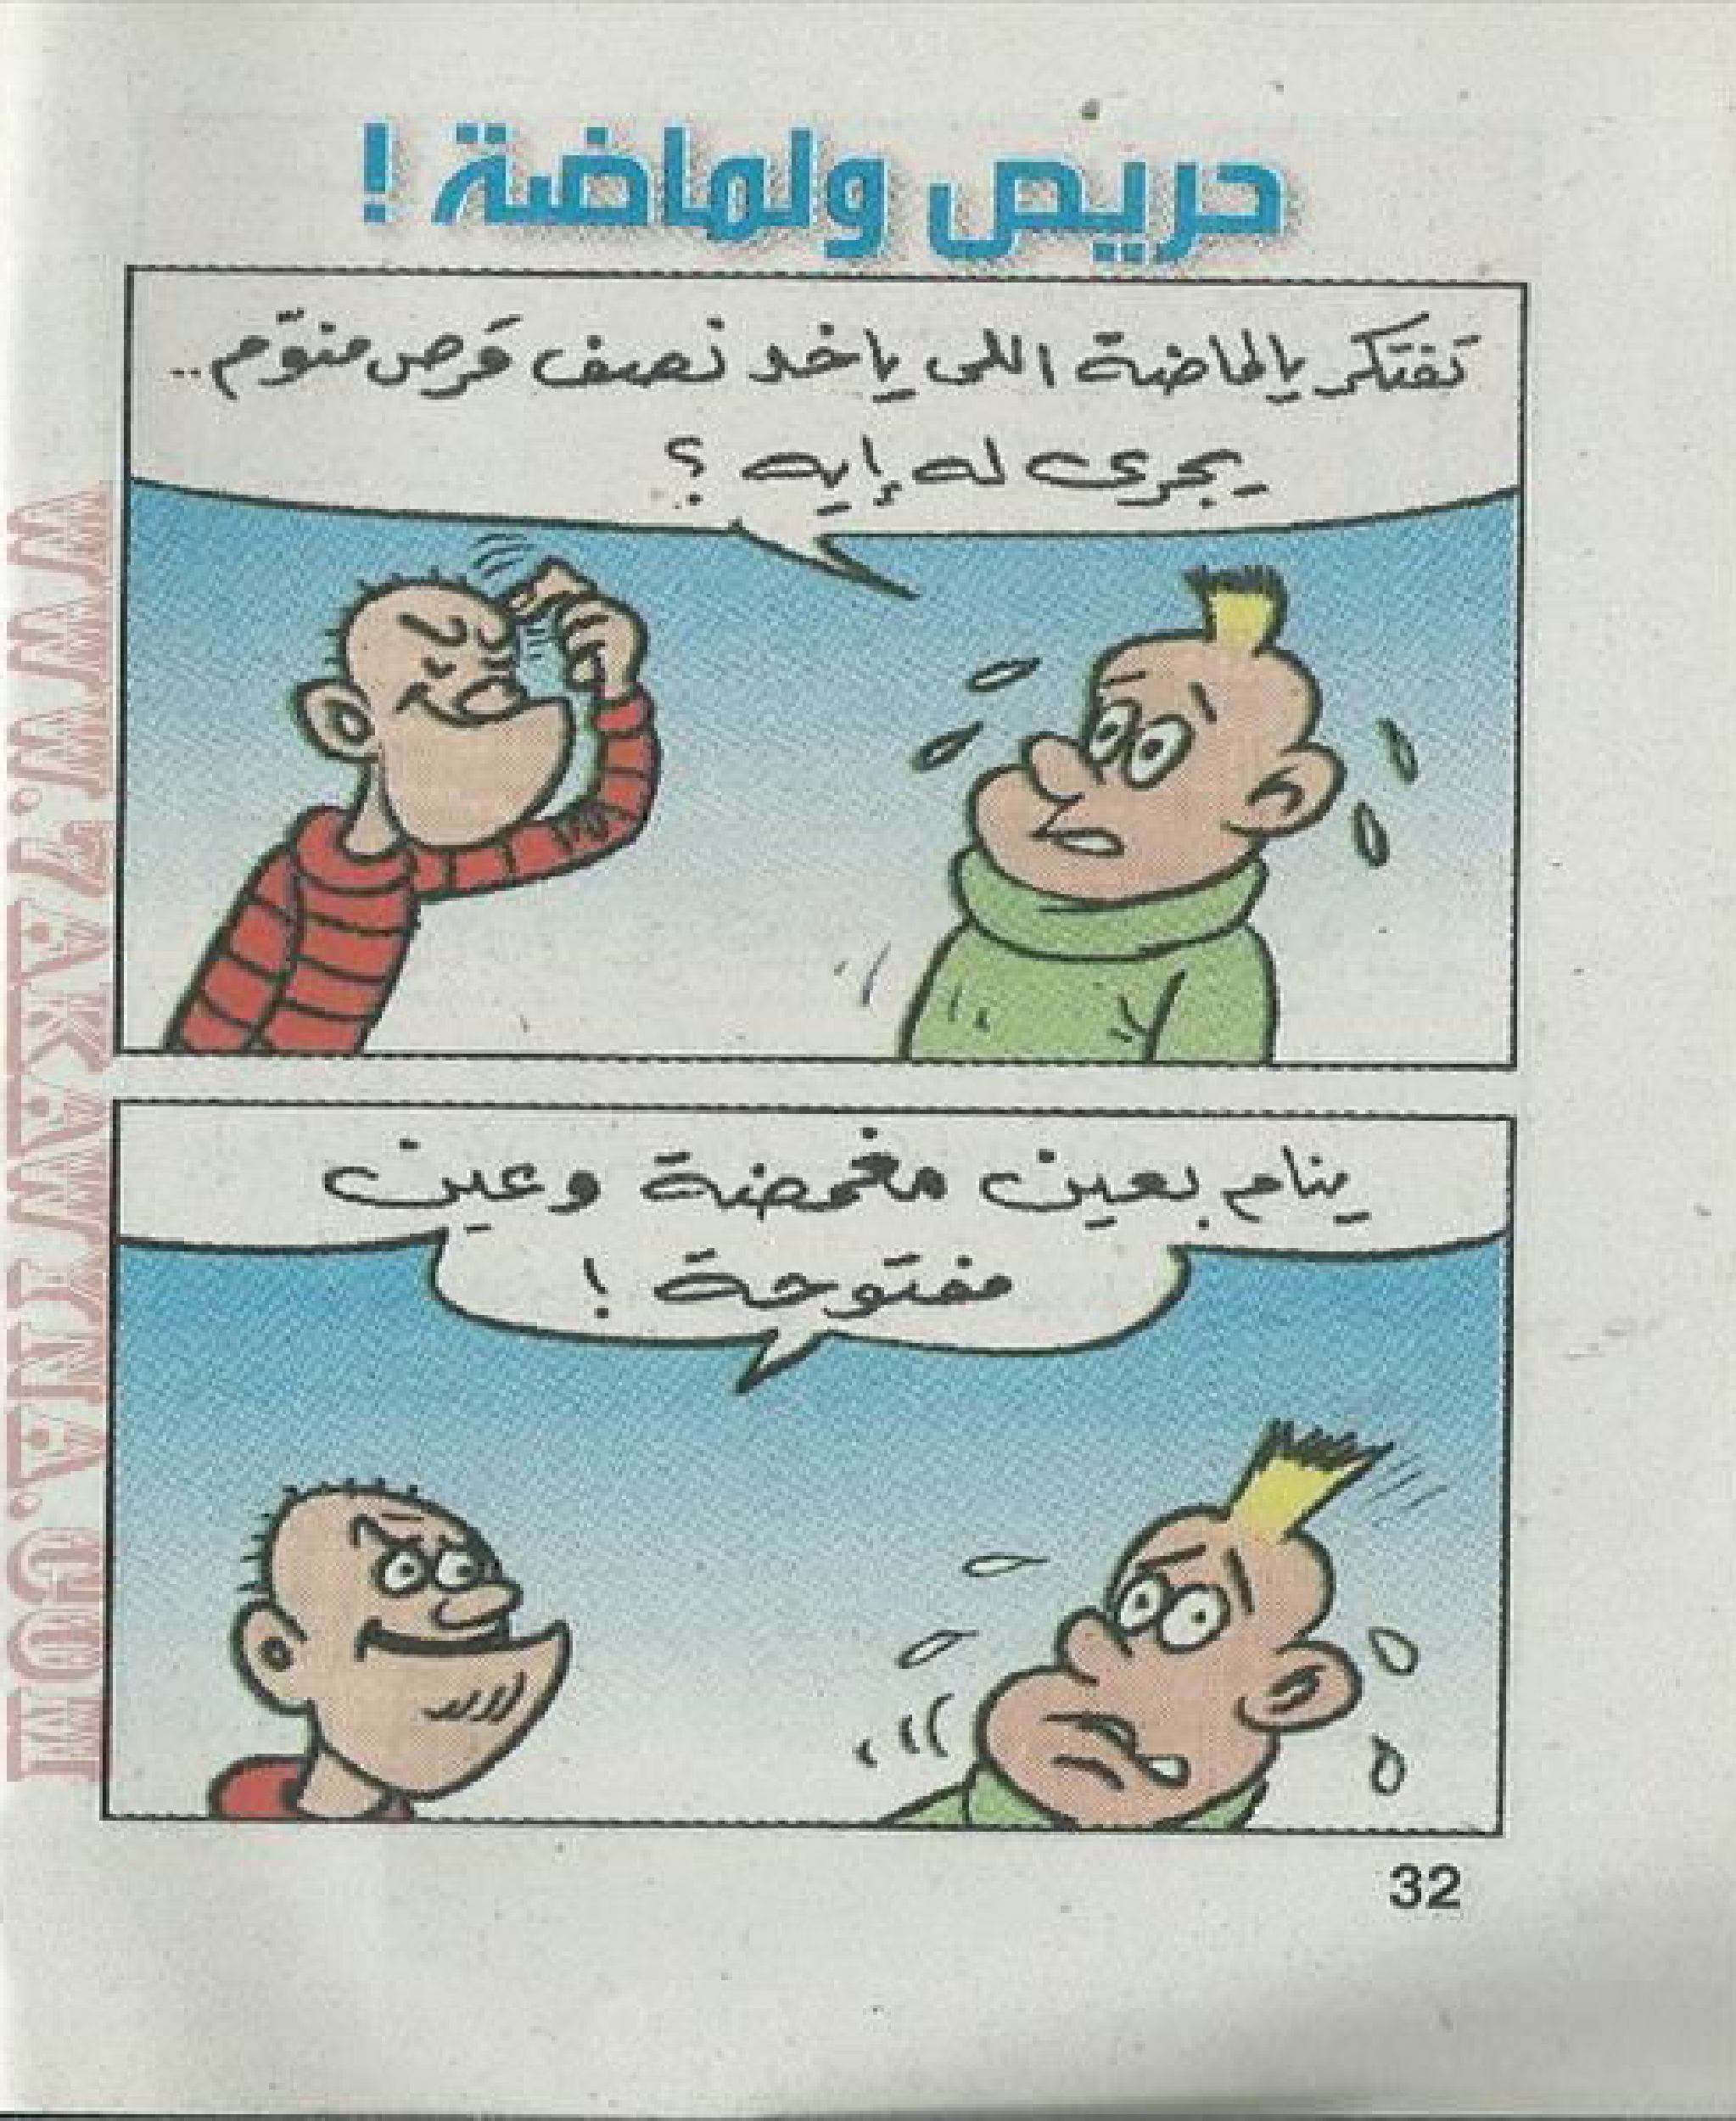 حريص ولماضة !
تفتكر يالماضة اللى ياخد نصف قرص منوّم..
يجرى له إيه ؟
ينام بعين مغمضة وعين
مفتوحة !
32
WWW.7AKAWYNA.COM